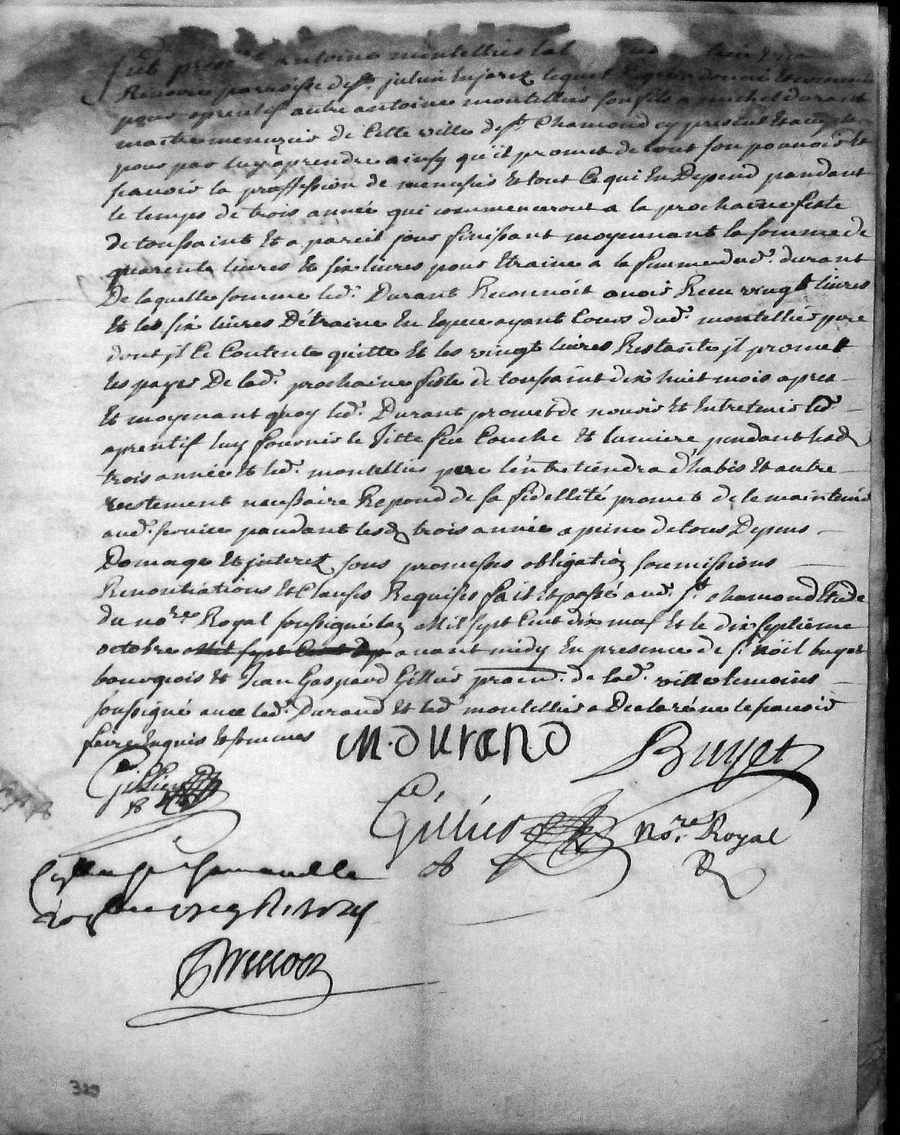 fut présent antoine montellier lab
Riviere parroisse de st. julien en jarez lequel a donné et comme
pour aprentif autre antoine montellier son fils a michel durant
maitre menuzier de cette ville de st. Chamond cy present et acceptant
pour par luy aprendre ainsy qu'il promet de tout son pouvoir et
scavoir la proffession de menusier et tout ce qui en Depend pandant
le temps de trois année qui commenceront a la prochaine feste
de toussaint et a pareil jour finissant moyennant la somme de
quarente livres et six livres pour Etraine a la femme dud. durant
De laquelle somme led. Durant Reconnoit avoir Receu vingt livres
et les six livres D'étraine En Espece ayant Cours dud. montellier pere
dont jl Ce Contente quitte et les vingt livres Restante jl promet
les payer De lad. prochaine feste de toussaint dix huit mois apres
et moyenant quoy led. Durant promet de nourir et Entretenir led.
aprentif luy fournir le gitte feu Couche et lumiere pendant lesd
trois année et led. montellier pere l'entretiendra d'habis et autre
vestement necessaire Repond de sa fidellité promet de le maintenir
aud. service pandant lesd trois année a peine de tous Depens
Domage et jnterez sous promesses obligation soumissions
Renontiations et Clauses Requises fait et passé aud. st. chamond Etude
du nore. Royal soussigné lan Mil sept Cent dix neuf et le dix septieme
octobre avant midy En presence de sr. Nöel buyet
bourgeois et Jean Gaspard Gillier de lad. ville temoins
soussigné avec led. Durand et led. montellier a Declaré ne le scavoir
faire Enquis et sommes
M. dURAND
Buyet
Gillier
Gillier
Nore. Royal
329